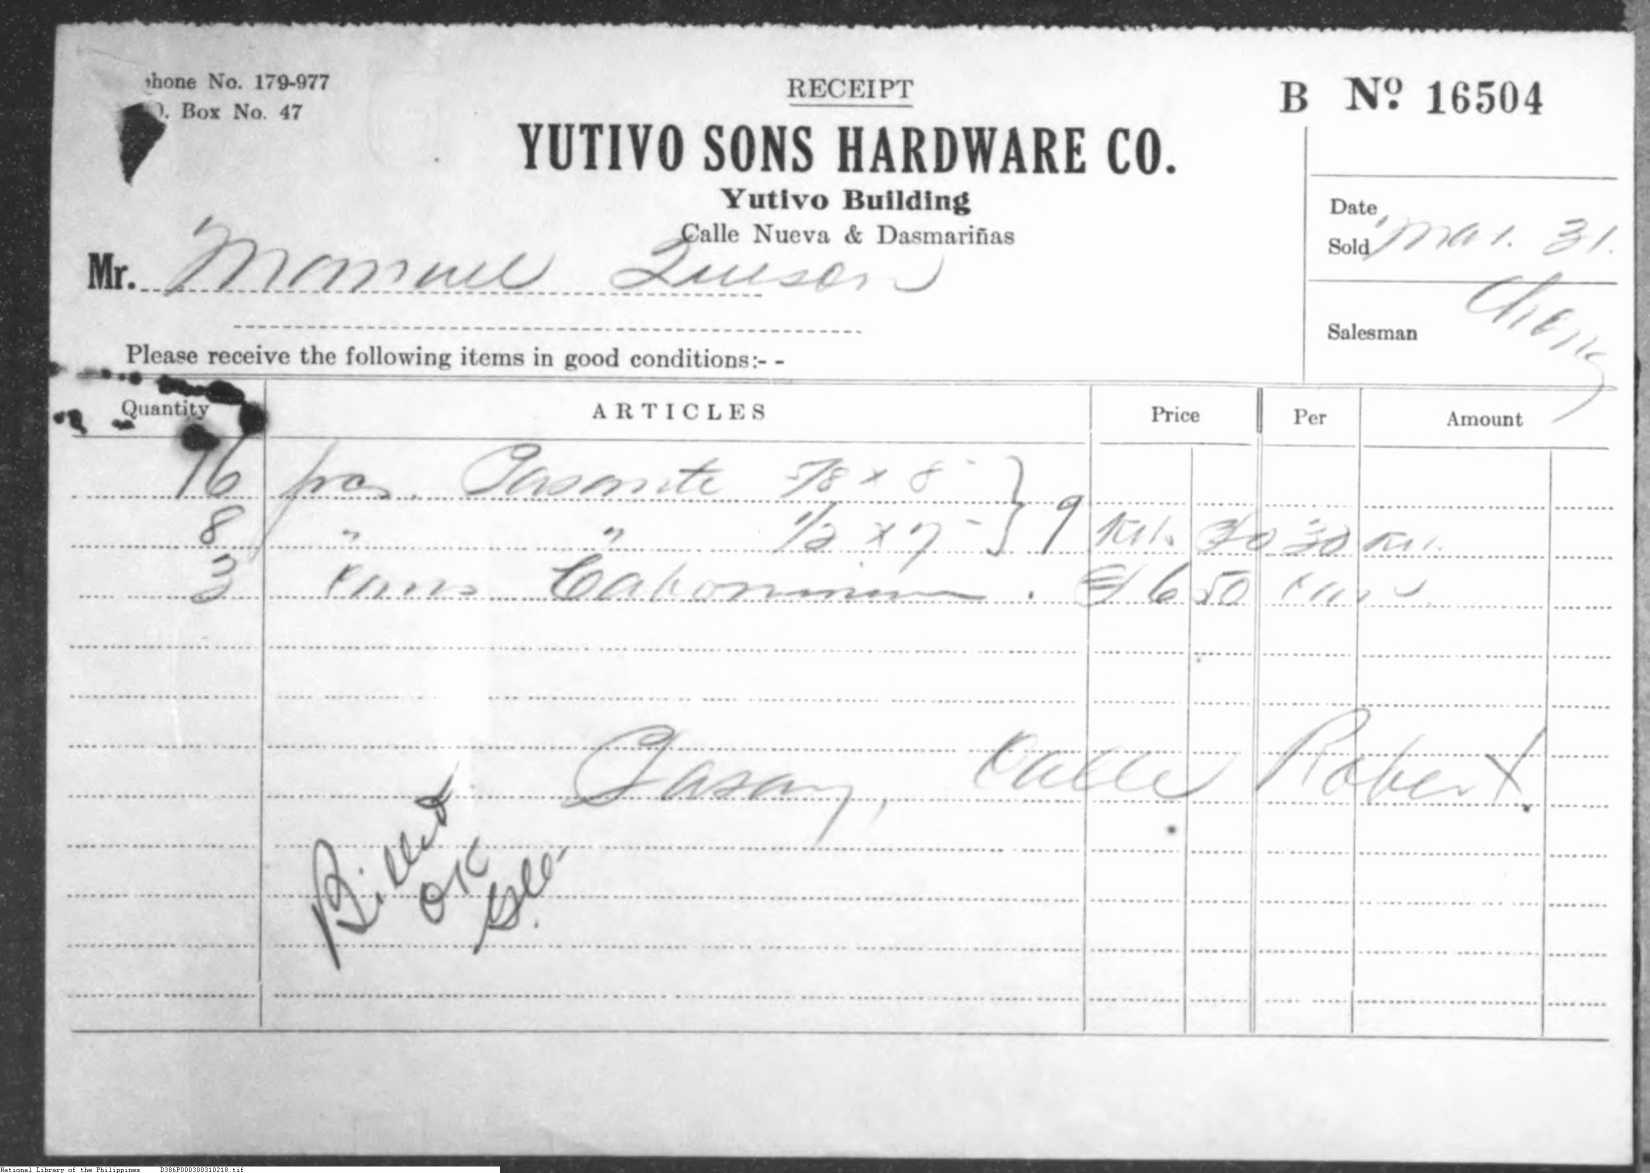 phone No. 179-977
O. Box No. 47
RECEIPT
B Nº 16504
YUTIVO SONS HARDWARE CO.
Yutivo Building
Calle Nueva & Dasmariñas
Mr. Manuel Queson
Date
Sold Mar. 31.
Salesman Cheng
Please receive the following items in good conditions:- -
Quantity ARTICLES Price Per Amount
16 pcs. Pasante 5/8 x 8"
8 " " 1/2 x 7" } 9 Kil. 30
3
6 50
Pasay, Calle Robert.
Billed
OK
National Library of the Philippines D386P000300310210.tif